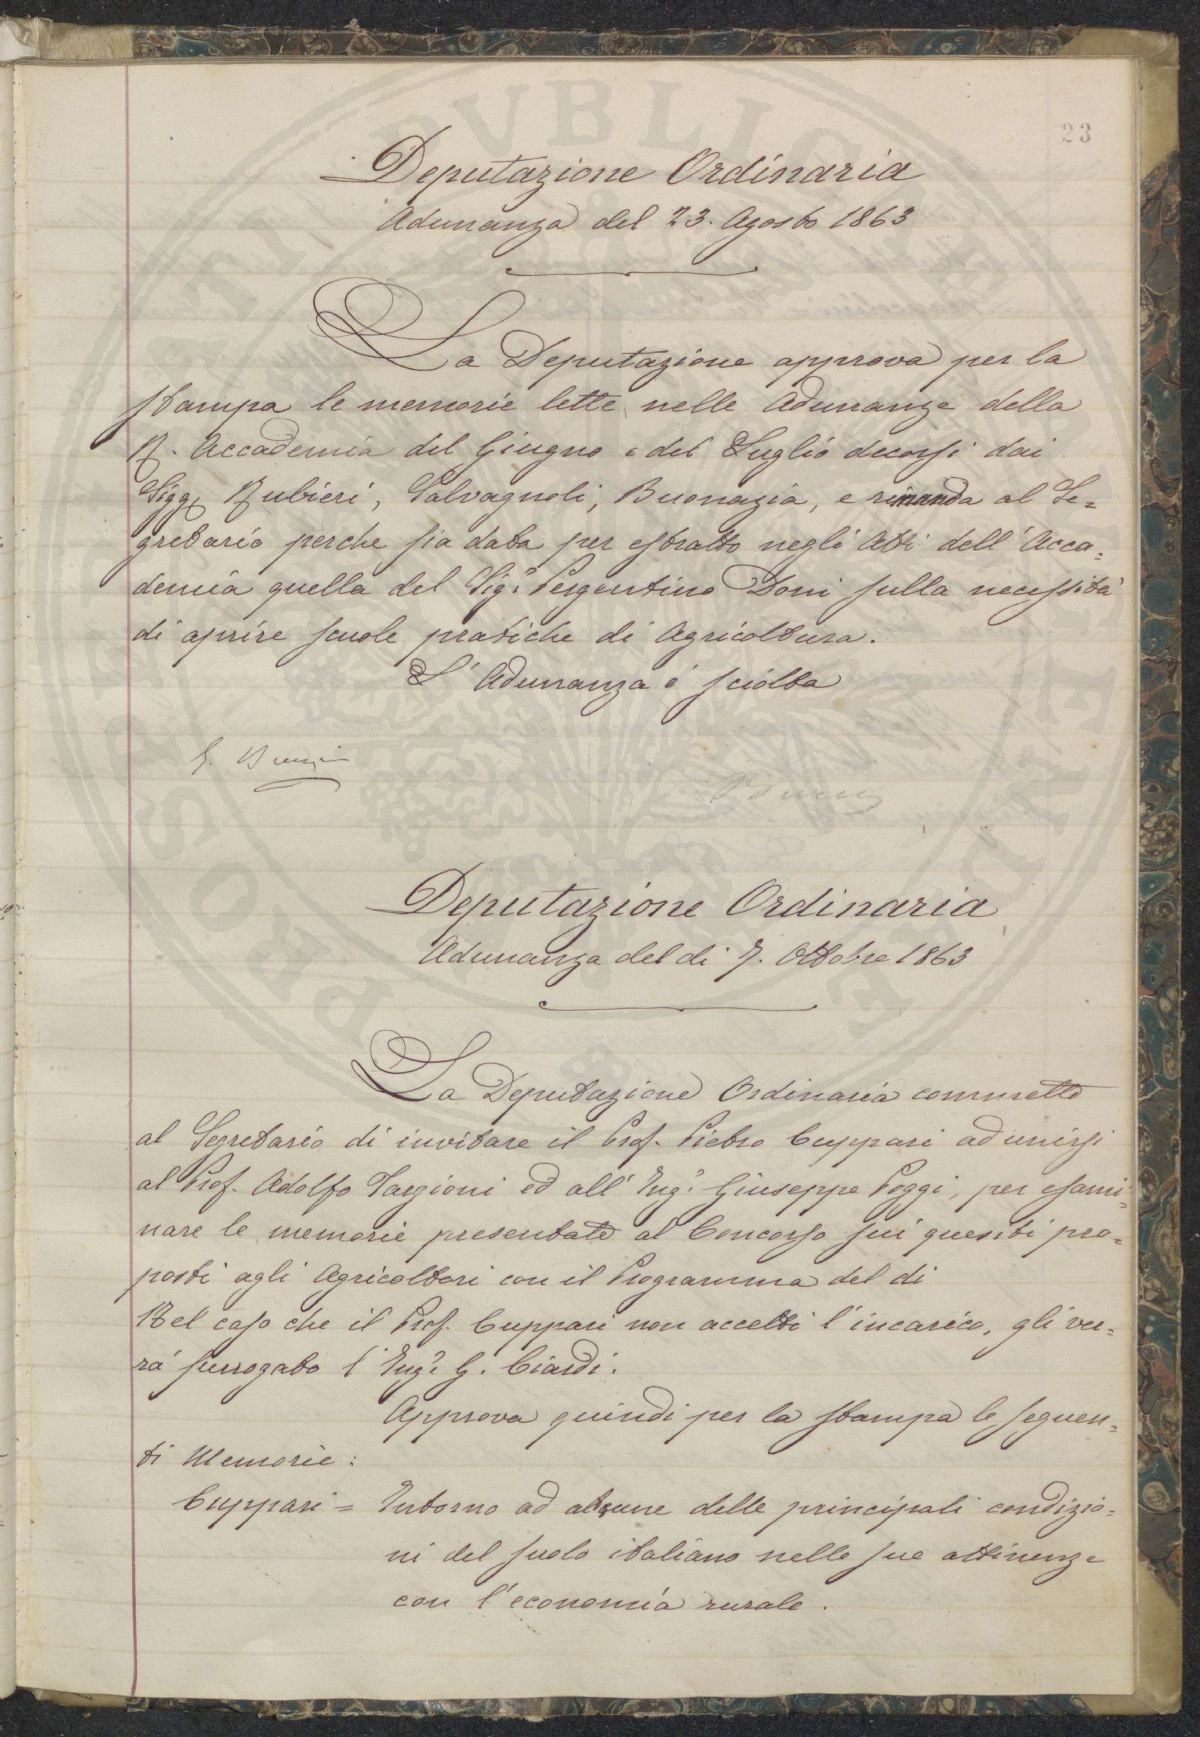 23
Deputazione Ordinaria
Adunanza del 23. Agosto 1863
La Deputazione approva per la
stampa le memorie lette nelle Adunanze della
R. Accademia del Giugno e del Luglio decorsi dai
Sigg. Rubieri, Salvagnoli, Buonazia, e rimanda al Se=
gretario perche sia data per estratto negli Atti dell'Acca=
demia quella del Sig.r Pergentino Doni sulla necessità
di aprire scuole pratiche di Agricoltura.
L'Adunanza è sciolta
Deputazione Ordinaria
Adunanza del di 7. Ottobre 1863
La Deputazione Ordinaria commette
al Segretario di invitare il Prof. Pietro Cuppari ad unirsi
al Prof. Adolfo Targioni ed all'Ing.e Giuseppe Poggi, per esami=
nare le memorie presentate al Concorso sui quesiti pro=
posti agli Agricoltori con il Programma del di
Nel caso che il Prof. Cuppari non accetti l'incarico, gli ver=
rà surrogato l'Ing.e G. Ciardi.
Approva quindi per la stampa le seguen=
ti Memorie:
Cuppari = Intorno ad alcune delle principali condizio=
ni del suolo italiano nelle sue attinenze
con l'economia rurale.